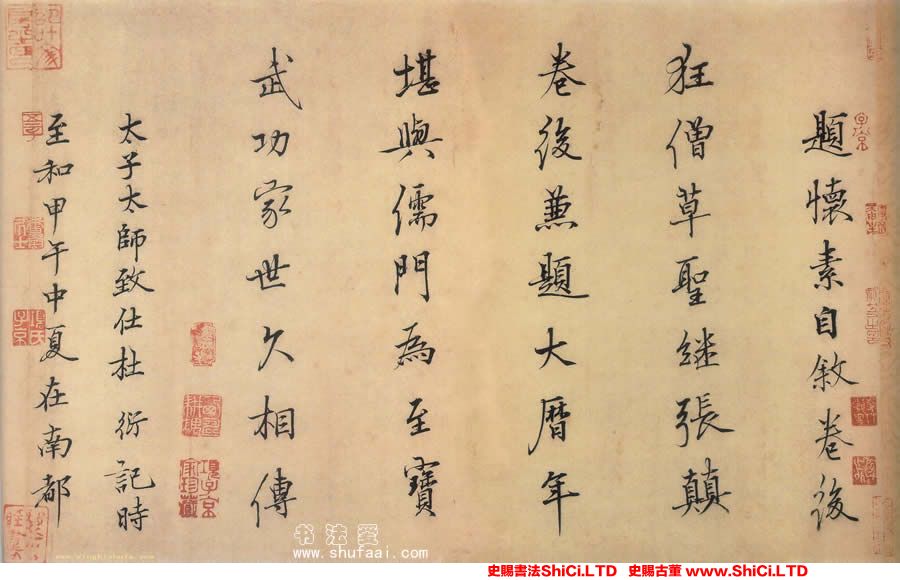 題懷素自敘卷後
狂僧草聖繼張顛
卷後兼題大曆年
堪與儒門為至寶
武功家世久相傳
太子太師致仕杜衍記時
至和甲午中夏在南都
书法爱
www.shufaai.com
史賜書法ShiCi.LTD 史賜古董 www.ShiCi.LTD